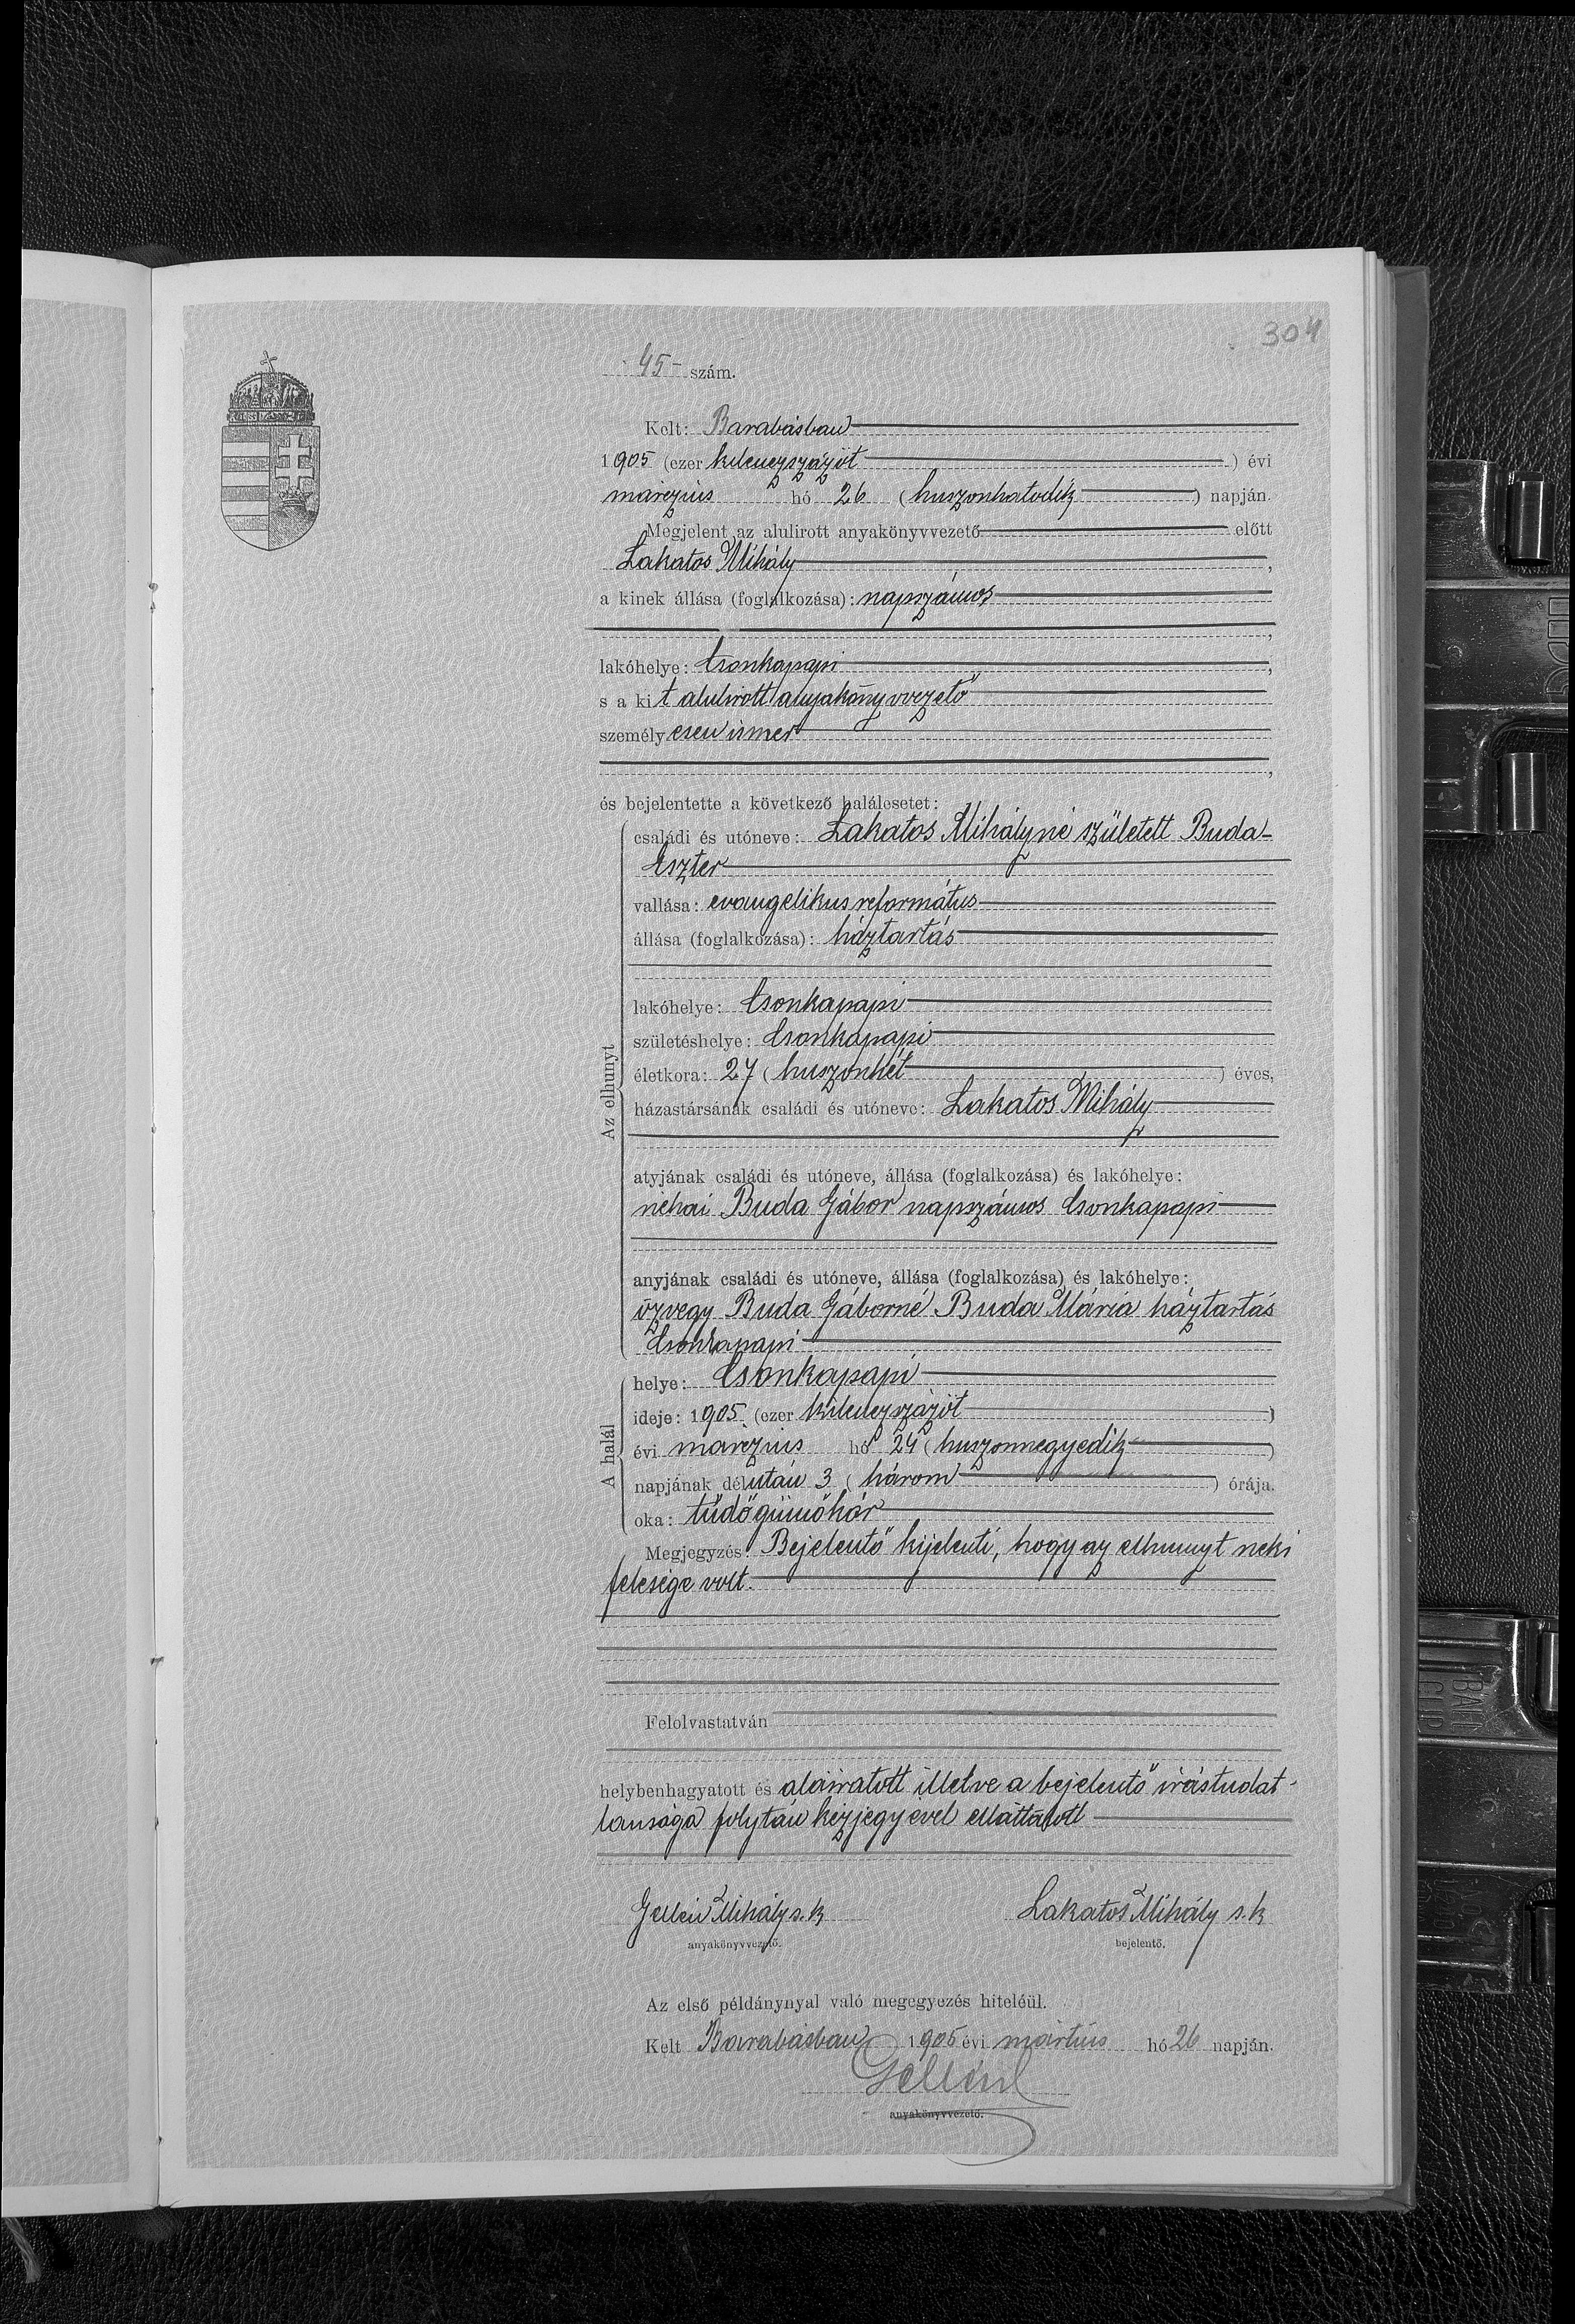 304
45 szám.
Kelt: Barabásban
1905 (ezer kilenczszázöt) évi
márczius hó 26 (huszonhatodik) napján.
Megjelent az alulirott anyakönyvvezető előtt
Lakatos Mihály,
a kinek állása (foglalkozása): napszámos
,
lakóhelye: Csonkapapi,
s a kit alulirott anyakönyvvezető
személyesen ismer
,
és bejelentette a következő halálesetet:
Az elhunyt
családi és utóneve: Lakatos Mihályné született Buda-
Eszter
vallása: evangelikus református
állása (foglalkozása): háztartás
lakóhelye: Csonkapapi
születéshelye: Csonkapapi
életkora: 27 (huszonhét) éves,
házastársának családi és utóneve: Lakatos Mihály
atyjának családi és utóneve, állása (foglalkozása) és lakóhelye:
néhai Buda Gábor napszámos Csonkapapi
anyjának családi és utóneve, állása (foglalkozása) és lakóhelye:
özvegy Buda Gáborné Buda Mária háztartás
Csonkapapi
A halál
helye: Csonkapapi
ideje: 1905 (ezer kilenczszázöt)
évi márczius hó 24 (huszonnegyedik)
napjának délután 3 (három) órája.
oka: tüdőgümőkór
Megjegyzés: Bejelentő kijelenti, hogy az elhunyt neki
felesége volt.
Felolvastatván
helybenhagyatott és aláiratott illetve a bejelentő irástudat-
lansága folytán kézjegyével elláttatott
Gellén Mihály s.k. Lakatos Mihály s.k.
anyakönyvvezető. bejelentő.
Az első példánynyal való megegyezés hiteléül.
Kelt Barabásban 1905 évi mártius hó 26 napján.
Gellén
anyakönyvvezető.